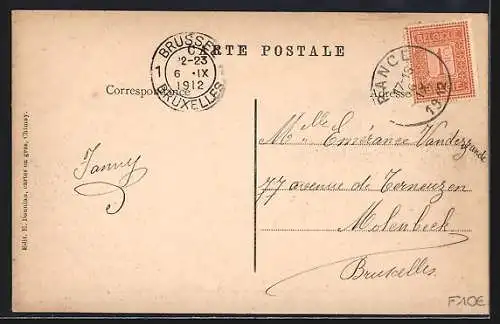 CARTE POSTALE
BRUSSEL
1
22-23
6 IX
1912
BRUXELLES
BELGIQUE
RANCE
17-18
1912
Correspondance
Adresse
Melle Emérance Vanderzande
77 avenue de Terneuzen
Molenbeek
Bruxelles.
Fanny
Edit. H. Dauntas, cartes en gros, Chimay.
F10E